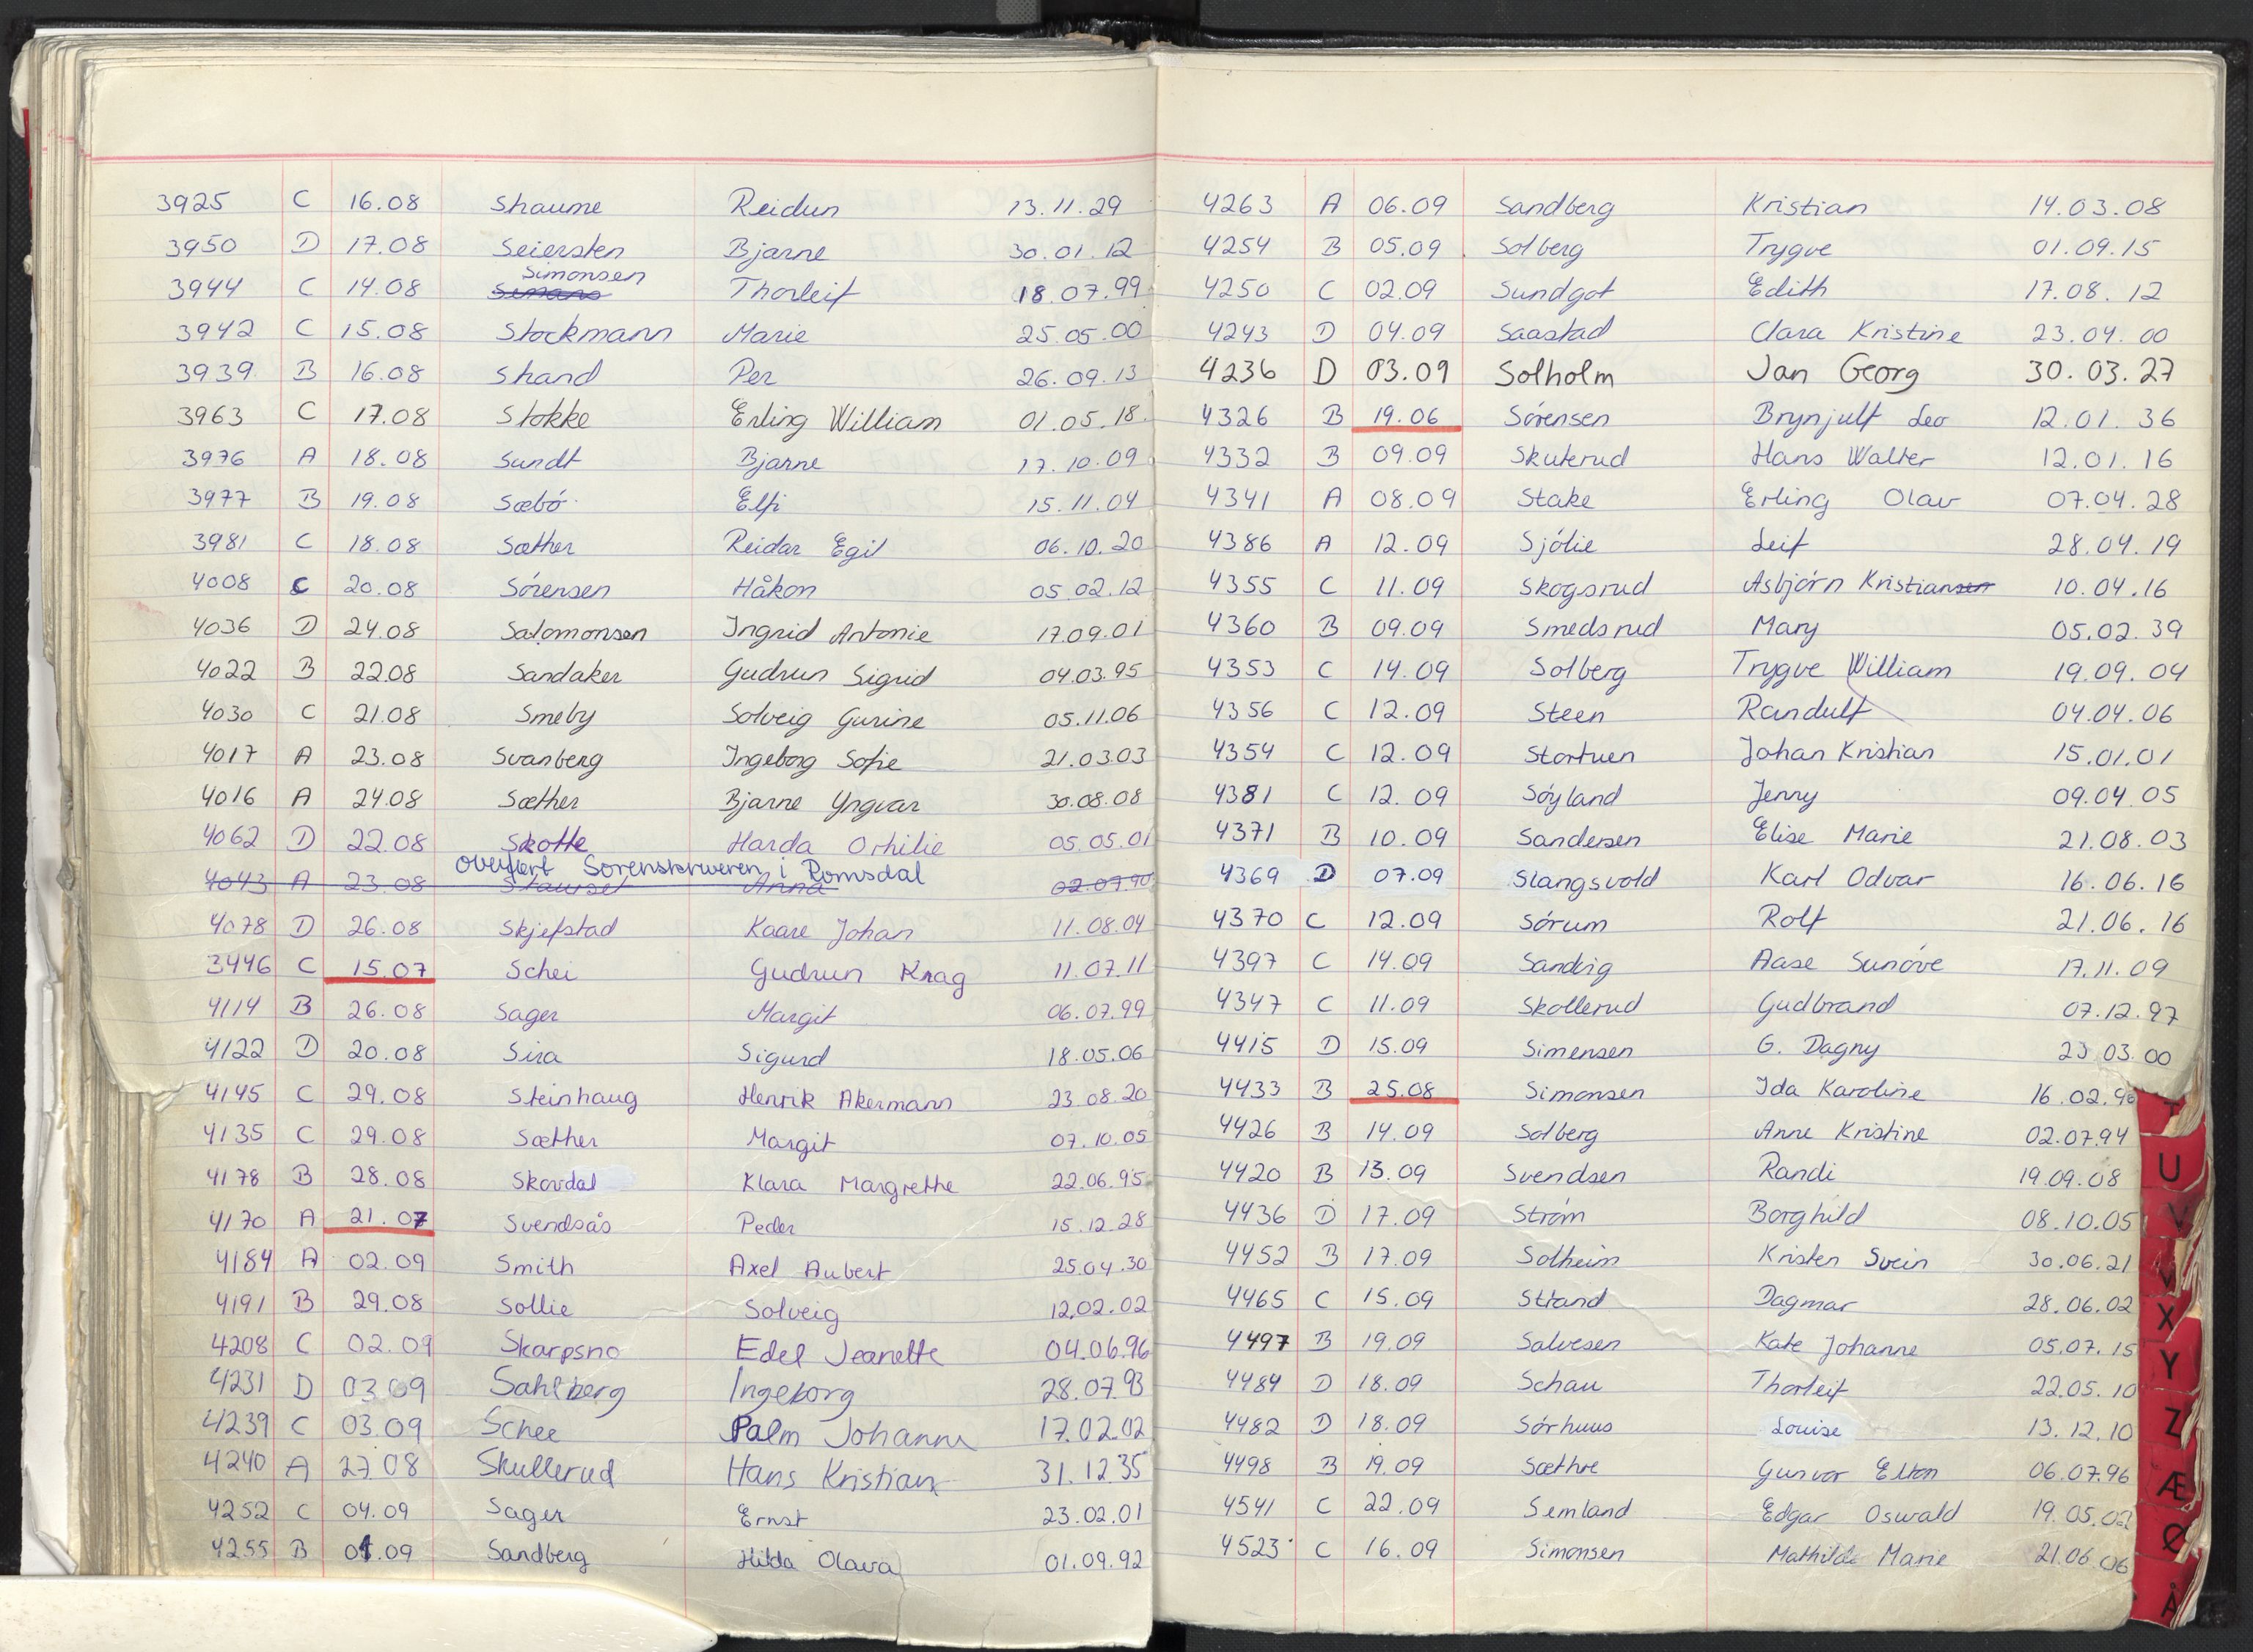 3925 C 16.08 Skaume Reidun 13.11.29
3950 D 17.08 Seiersten Bjarne 30.01.12
Simonsen
3944 C 14.08 Thorleif 18.07.99
3942 C 15.08 Stockmann Marie 25.05.00
3939 B 16.08 Shand Per 26.09.13
3963 C 17.08 Stokke Erling William 01.05.18
3976 A 18.08 Sundt Bjarne 17.10.09
3977 B 19.08 Sæbó Elfi 15.11.04
3981 C 18.08 Sæther Reidar Egil 06.10.20
4008 C 20.08 Sórensen Håkon 05.02.12
4036 D 24.08 Salomonsen Ingrid Antonie 17.09.01
4022 B 22.08 Sandaker Gudrun Sigrid 04.03.95
4030 C 21.08 Smeby Solveig Gurine 05.11.06
4017 A 23.08 Svanberg Ingeborg Sofie 21.03.03
4016 A 24.08 Sæther Bjarne Yngvar 30.08.08
4062 D 22.08 Skotte Harda Othilie 05.05.01
overført Sorenskriveren i Romsdal
4043 A 23.08 Anna 02.07.90
4078 D 26.08 Skjefstad Kaare Johan 11.08.04
3446 C 15.07 Schei Gudrun Krag 11.07.11
4114 B 26.08 Sager Margit 06.07.99
4122 D 20.08 Sira Sigurd 18.05.06
4145 C 29.08 Steinhaug Henrik Akermann 23.08.20
4135 C 29.08 Sæther Margit 07.10.05
4178 B 28.08 Skovdal Klara Margrethe 22.06.95
4170 A 21.07 Svendsås Peder 15.12.28
4184 A 02.09 Smith Axel Aubert 25.04.30
4191 B 29.08 Sollie Solveig 12.02.02
4208 C 02.09 Skarpsno Edel Jeanette 04.06.96
4231 D 03.09 Sahlberg Ingeborg 28.07.93
4239 C 03.09 Schee Palm Johanne 17.02.02
4240 A 27.08 Skullerud Hans Kristian 31.12.35
4252 C 04.09 Sager Ernst 23.02.01
4255 B 01.09 Sandberg Hilda Olava 01.09.92
4263 A 06.09 Sandberg Kristian 14.03.08
4254 B 05.09 Solberg Trygve 01.09.15
4250 C 02.09 Sundgot Edith 17.08.12
4243 D 04.09 Saastad Clara Kristine 23.04.00
4236 D 03.09 Solholm Jan Georg 30.03.27
4326 B 19.06 Sórensen Brynjulf Leo 12.01.36
4332 B 09.09 Skuterud Hans Walter 12.01.16
4341 A 08.09 Stake Erling Olav 07.04.28
4386 A 12.09 Sjólie Leif 28.04.19
4355 C 11.09 Skogsrud Asbjórn Kristiansen 10.04.16
4360 B 09.09 Smedsrud Mary 05.02.39
4353 C 14.09 Solberg Trygve William 19.09.04
4356 C 12.09 Steen Randulf 04.04.06
4354 C 12.09 Stortuen Johan Kristian 15.01.01
4381 C 12.09 Sóyland Jenny 09.04.05
4371 B 10.09 Sandersen Elise Marie 21.08.03
4369 D 07.09 Slangsvold Karl Odvar 16.06.16
4370 C 12.09 Sórum Rolf 21.06.16
4397 C 14.09 Sandvig Aase Sunóve 17.11.09
4347 C 11.09 Skollerud Gudbrand 07.12.97
4415 D 15.09 Simensen G. Dagny 23.03.00
4433 B 25.08 Simonsen Ida Karoline 16.02.96
4426 B 14.09 Solberg Anne Kristine 02.07.94
4420 B 13.09 Svendsen Randi 19.09.08
4436 D 17.09 Stróm Borghild 08.10.05
4452 B 17.09 Solheim Kristen Svein 30.06.21
4465 C 15.09 Strand Dagmar 28.06.02
4497 B 19.09 Salvesen Kate Johanne 05.07.15
4484 D 18.09 Schau Thorleif 22.05.10
4482 D 18.09 Sórhuus Louise 13.12.10
4498 B 19.09 Sæthre Gunvor Elton 06.07.96
4541 C 22.09 Semland Edgar Oswald 19.05.02
4523 C 16.09 Simonsen Mathilde Marie 21.06.06
T
U
V
X
Y
Z
Æ
Ø
Å